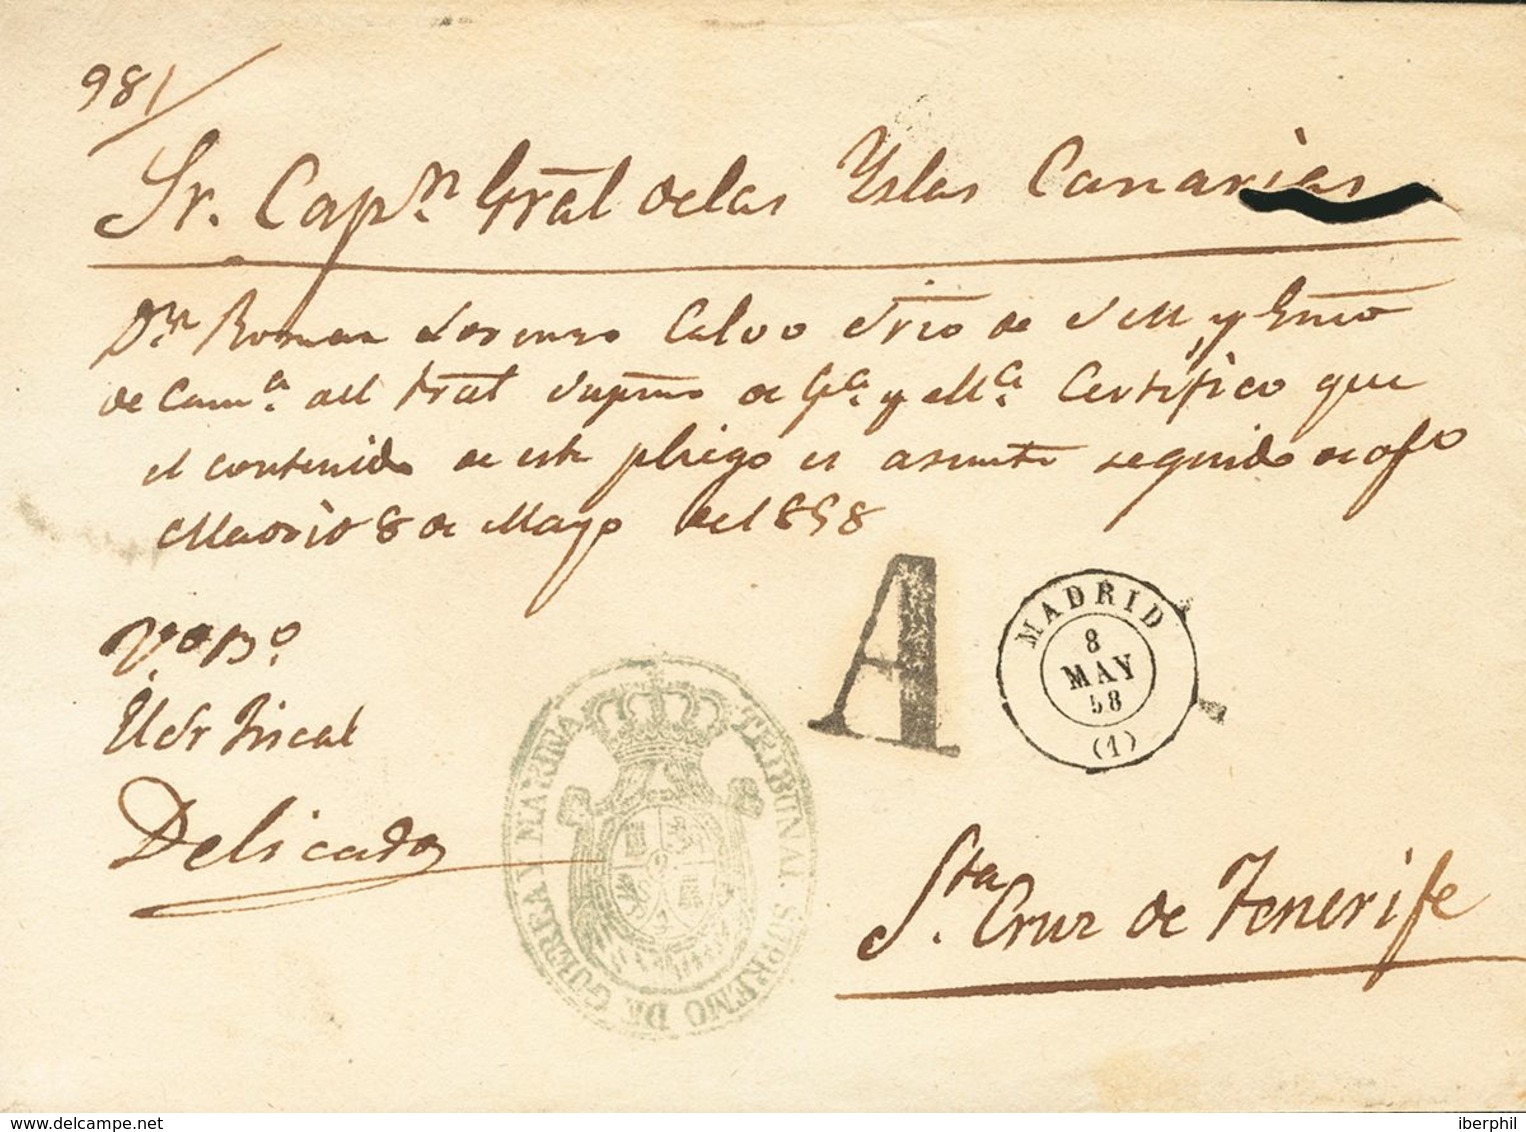 981
Sr. Capn. Gral delas Yslas Canarias
Dn. Roman Lorenzo Calvo Srio de S.M. y Essno
de Cama. del tral Supmo de Ga. y Ma. Certifico que
el contenido de este pliego es asunto seguido de ofo
Madrid 8 de Mayo del 858
Vo Bo.
El Sr Fiscal
Delicado
A
MADRID
8
MAY
58
(1)
TRIBUNAL SUPREMO DE GUERRA Y MARINA
Sta. Cruz de Tenerife
delcampe.net
iberphil